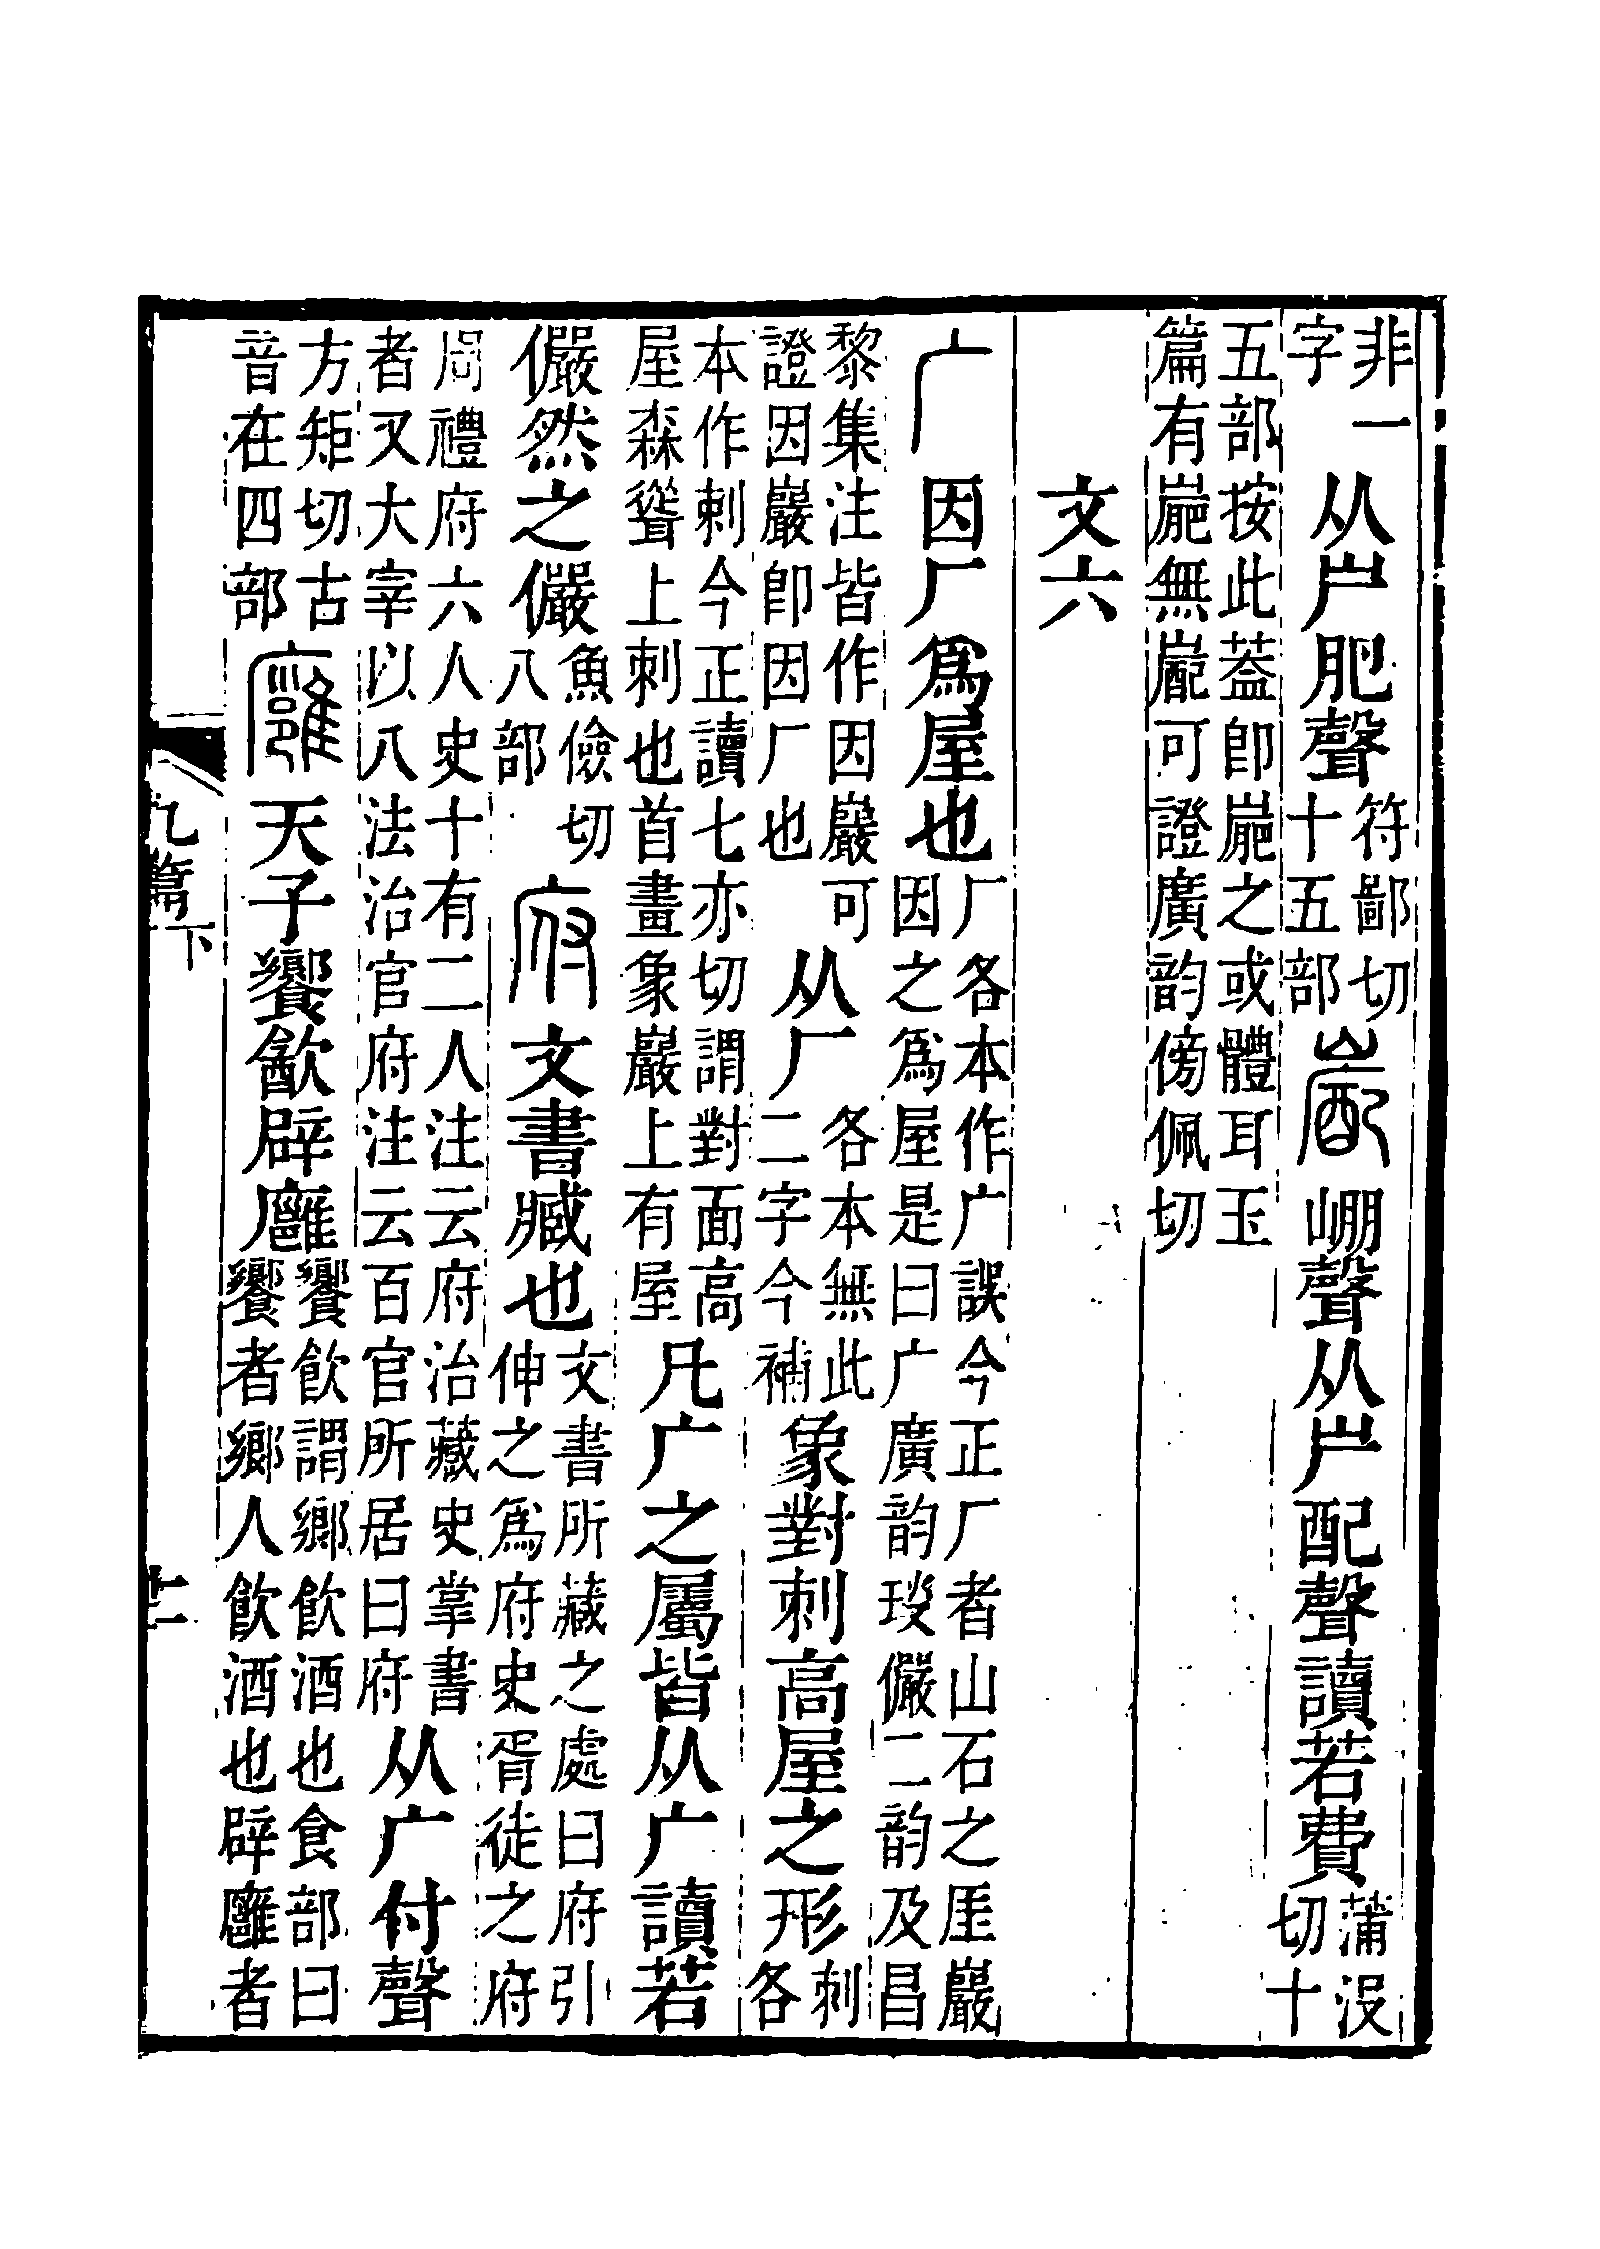 非一字从屵肥聲符鄙切十五部嶏崩聲从屵配聲讀若費蒲沒切十
五部按此蓋卽之或體耳玉篇有無嶏可證廣韵傍佩切
文六
广因厂爲屋也厂各本作广誤今正厂者山石之厓巖因之爲屋是曰广廣韵琰儼二韵及昌
黎集注皆作因巖可證因巖卽因厂也从厂各本無此二字今補象對刺高屋之形刺各
本作剌今正讀七亦切謂對面高屋森聳上刺也首畫象巖上有屋凡广之屬皆从广讀若
儼然之儼魚儉切八部府文書臧也文書所藏之處曰府引伸之爲府史胥徒之府
周禮府六人史十有二人注云府治藏史掌書者又大宰以八法治官府注云百官所居曰府从广付聲
方矩切古音在四部廱天子饗歓辟廱饗飮謂鄉飮酒也食部曰饗者鄉人飮酒也辟廱者
九篇下
十二